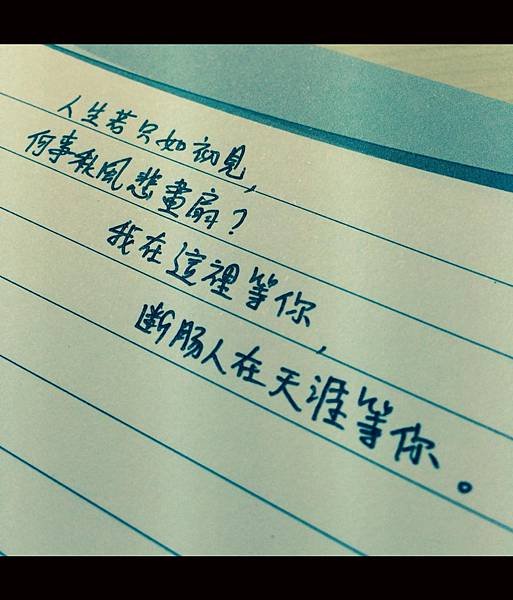 人生若只如初見,
何事秋風悲畫扇?
我在這裡等你,
斷腸人在天涯等你。